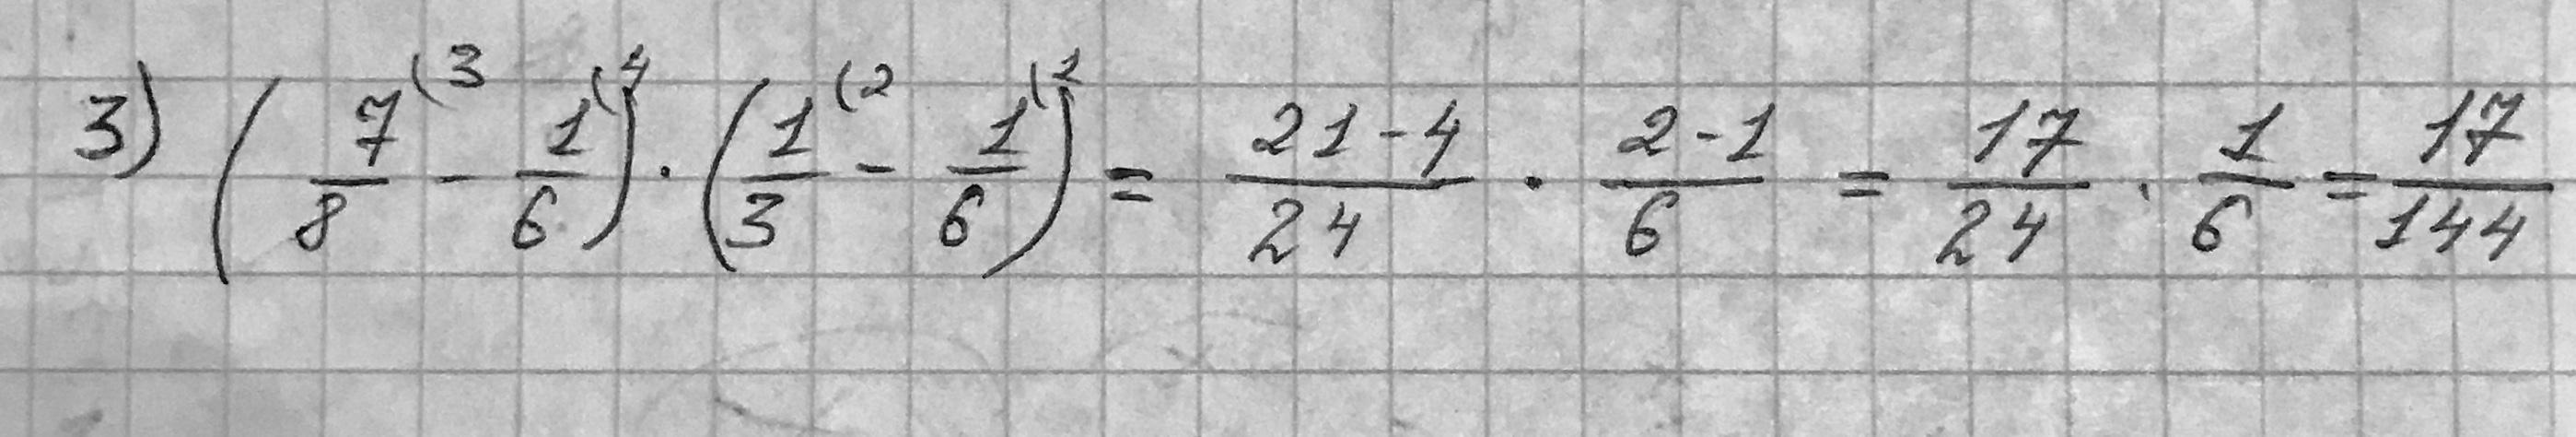 3) (7/8⁽³ - 1/6⁽⁴) · (1/3⁽² - 1/6⁽¹) = (21-4)/24 · (2-1)/6 = 17/24 · 1/6 = 17/144